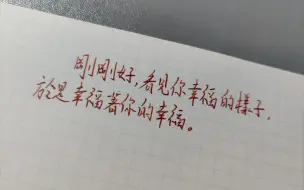 刚刚好，看见你幸福的樣子，
於是幸福著你的幸福。